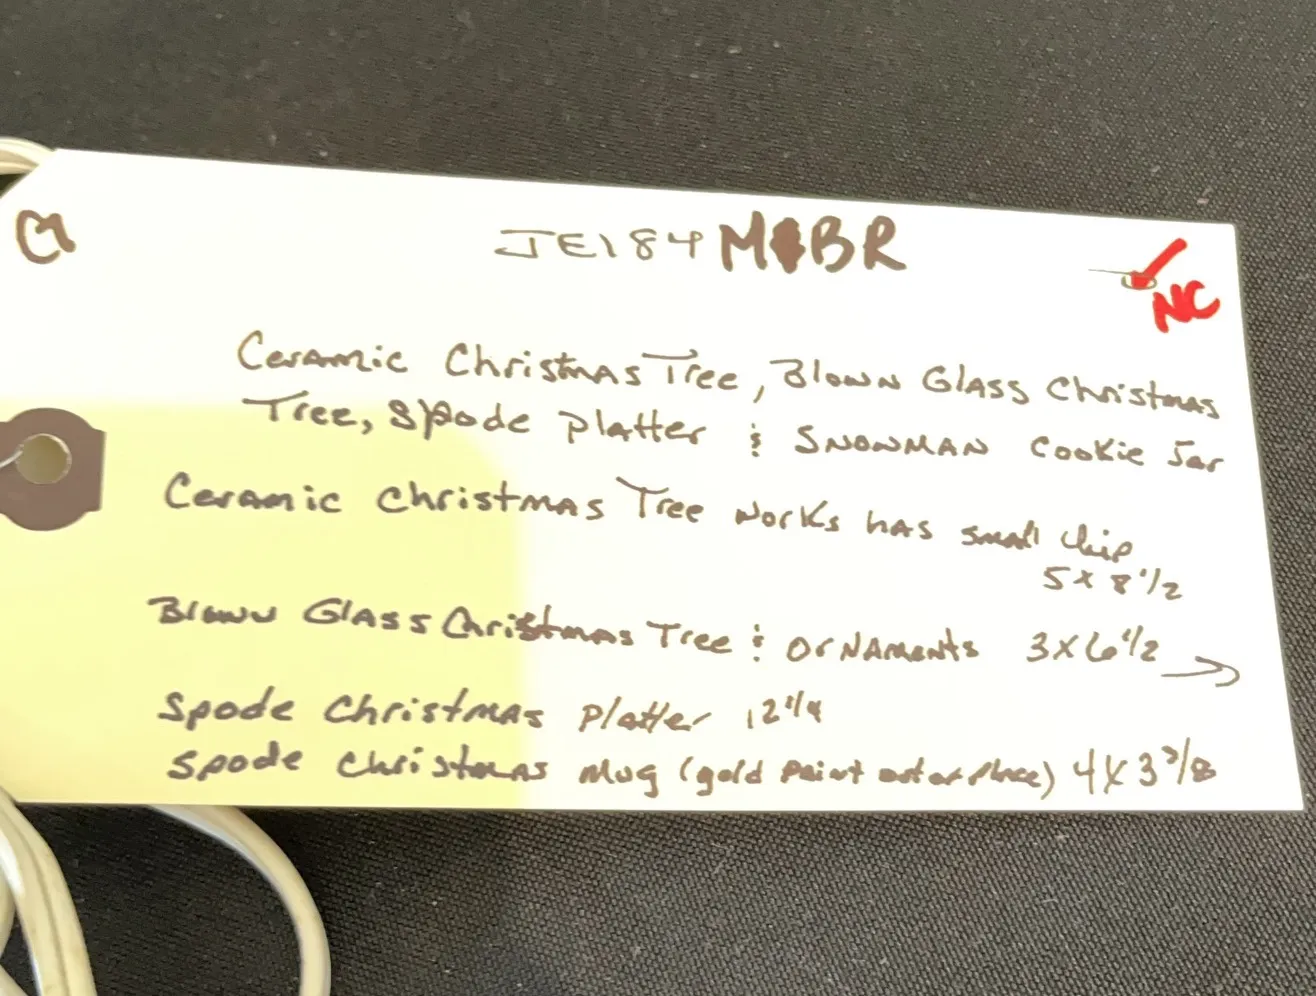 JE184 MBR
NC
Ceramic Christmas Tree, Blown Glass Christmas
Tree, Spode Platter & Snowman Cookie Jar
Ceramic Christmas Tree Works has small chip
5 x 8 1/2
Blown Glass Christmas Tree & Ornaments 3 x 6 1/2 →
Spode Christmas Platter 12 1/4
Spode Christmas Mug (gold paint out of place) 4 x 3 3/8